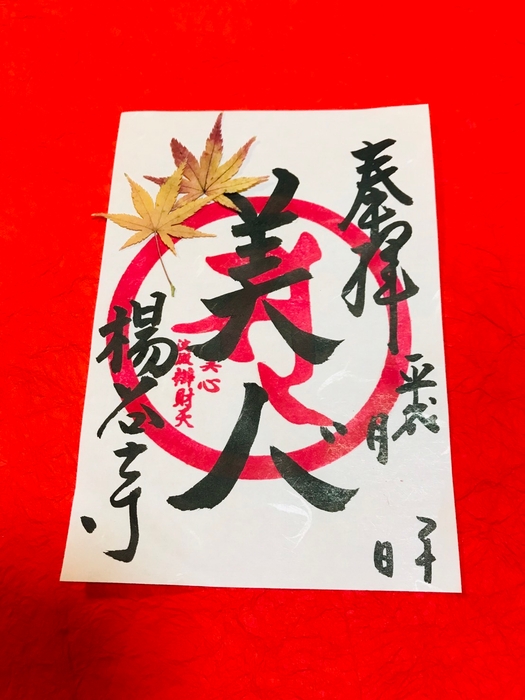 奉拝
平成 年
月 日
美人
美心
弁財天
楊谷寺